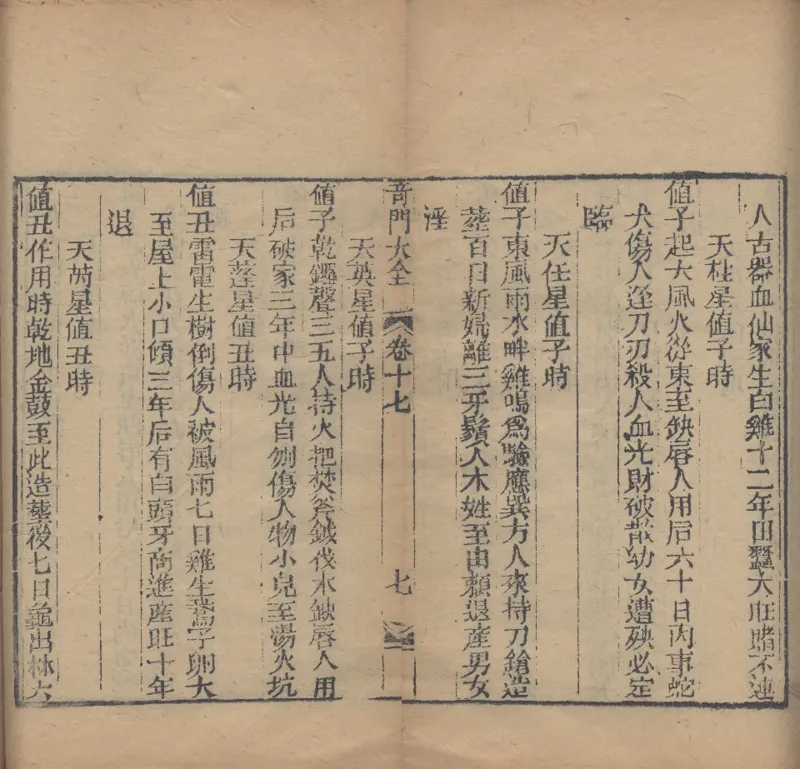 人古器血仙家生白雞十二年田蠶大旺賭不連
天柱星值子時
值子起大風火從東至缺唇人用后六十日內事蛇
犬傷人逢刀刃殺人血光財破散幼女遭殃必定
臨
天任星值子時
值子東風雨水畔雞鳴爲驗應巽方人來持刀鎗造
葬百日新婦離三牙鬚人木姓至由賴退產男女
淫
奇門大全 卷十七 七
天英星值子時
值子乾鑼聲三五人持火把焚斧鉞伐木缺唇人用
后破家三年中血光自刎傷人物小兒至湯火坑
天蓬星值丑時
值丑雷電生樹倒傷人被風雨七日雞生鵝子卵大
至屋上小口傾三年后有白頭牙商進產旺十年
退
天芮星值丑時
值丑作用時乾地金鼓至此造葬後七日龜出林六